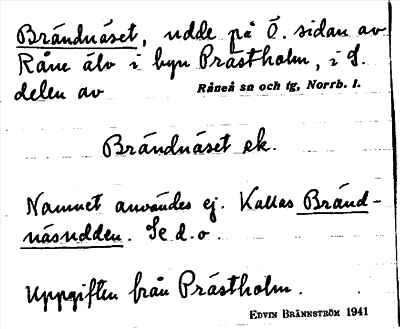 Brändnäset, udde på Ö. sidan av
Råne älv i byn Prästholm, i S.
delen av Råneå sn och tg, Norrb. l.
Brändnäset ek.
Namnet användes ej. Kallas Bränd-
näsudden. Se d.o.
Uppgiften från Prästholm.
EDVIN BRÄNNSTRÖM 1941